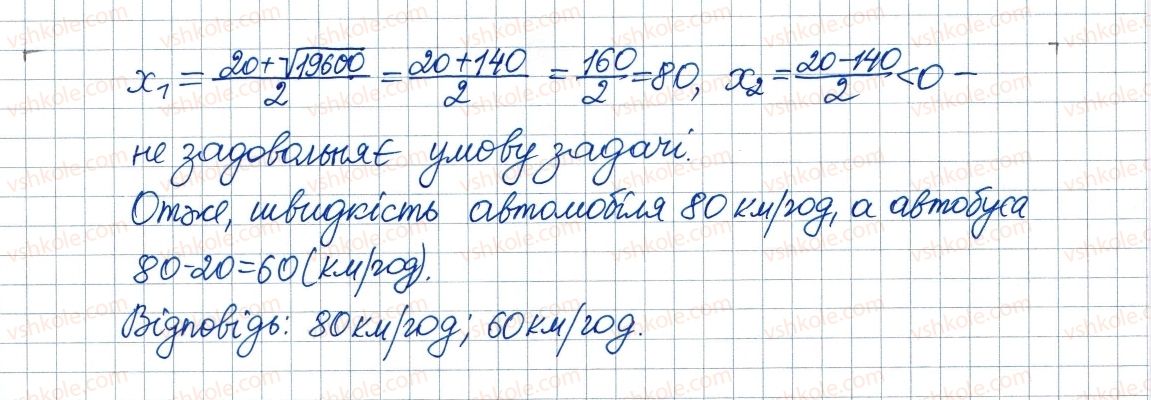 x₁ = (20+√19600)/2 = (20+140)/2 = 160/2 = 80, x₂ = (20-140)/2 < 0 —
не задовольняє умову задачі.
Отже, швидкість автомобіля 80 км/год, а автобуса
80-20=60 (км/год).
Відповідь: 80 км/год; 60 км/год.